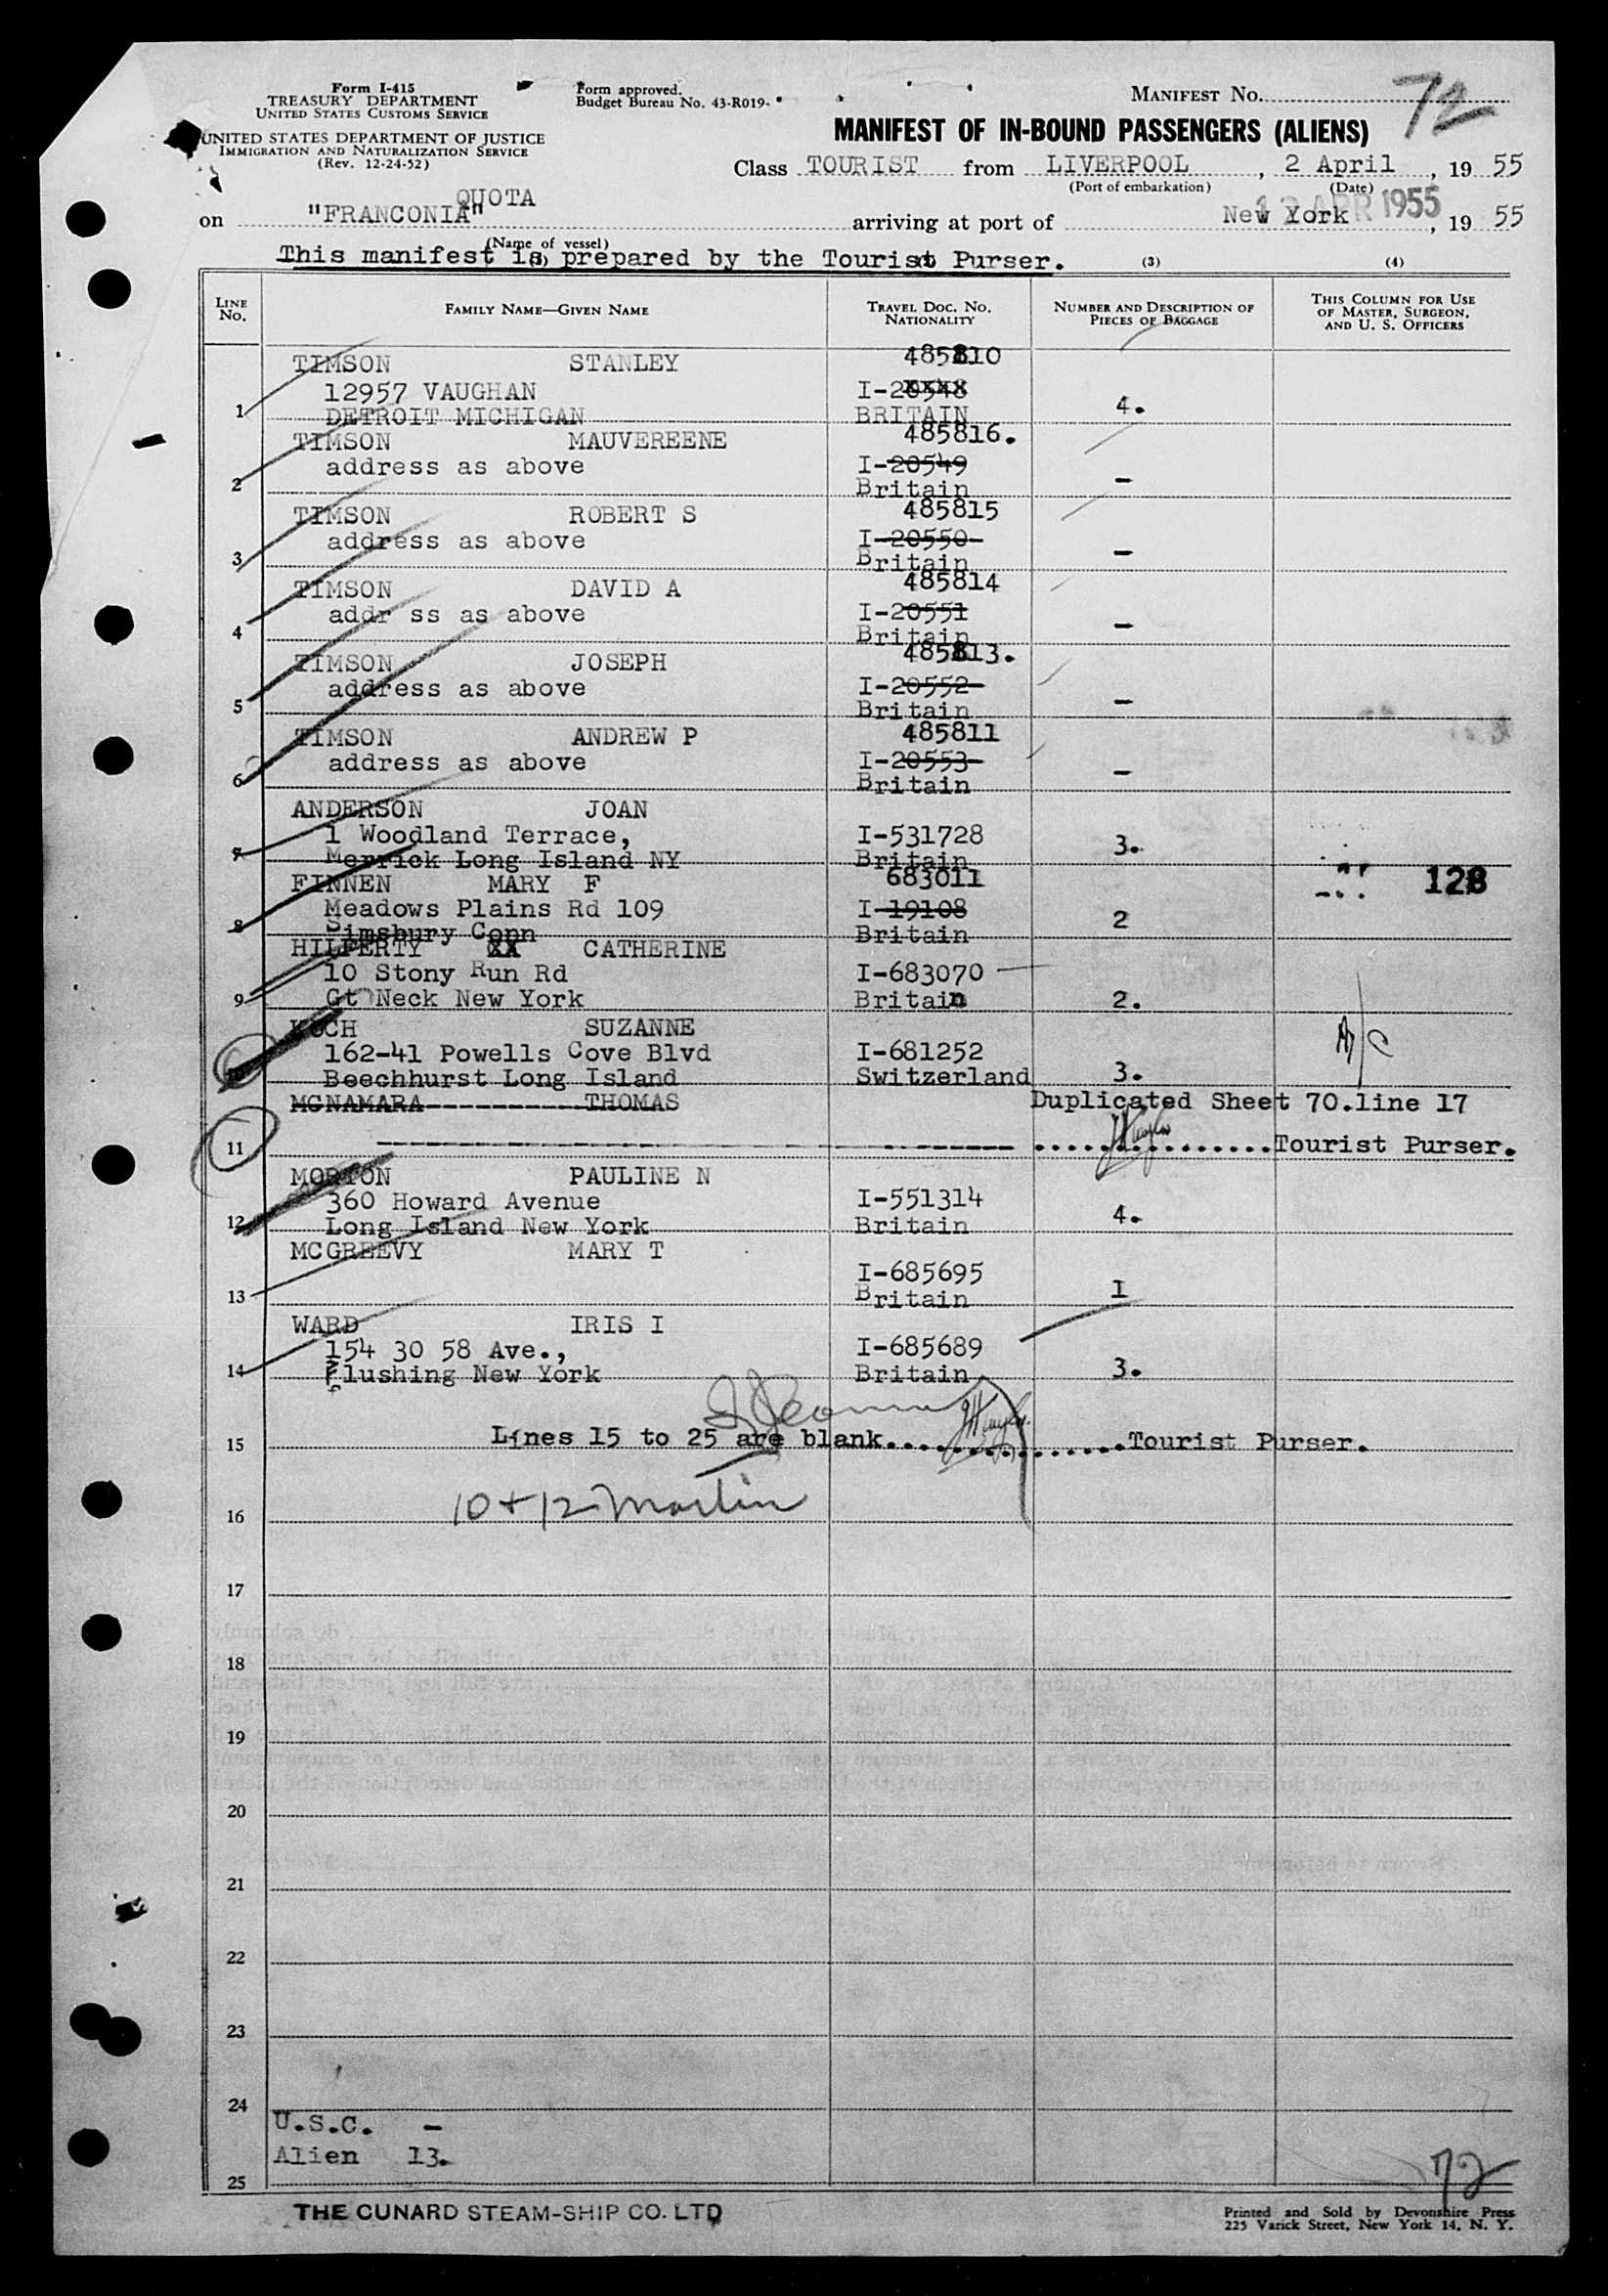 Form I-415
TREASURY DEPARTMENT
UNITED STATES CUSTOMS SERVICE
UNITED STATES DEPARTMENT OF JUSTICE
IMMIGRATION AND NATURALIZATION SERVICE
(Rev. 12-24-52)
Form approved.
Budget Bureau No. 43-R019-
MANIFEST No. 72
MANIFEST OF IN-BOUND PASSENGERS (ALIENS)
Class TOURIST from LIVERPOOL, 2 April, 19 55
(Port of embarkation) (Date)
QUOTA
on "FRANCONIA" arriving at port of New York, 19 55
12 APR 1955
(Name of vessel)
This manifest is prepared by the Tourist Purser. (3) (4)
LINE No. FAMILY NAME—GIVEN NAME TRAVEL DOC. NO. NATIONALITY NUMBER AND DESCRIPTION OF PIECES OF BAGGAGE THIS COLUMN FOR USE OF MASTER, SURGEON, AND U. S. OFFICERS
TIMSON STANLEY 485810
12957 VAUGHAN I-20548
1 DETROIT MICHIGAN BRITAIN 4.
TIMSON MAUVEREENE 485816.
address as above I-20549
2 Britain -
TIMSON ROBERT S 485815
address as above I-20550
3 Britain -
TIMSON DAVID A 485814
addr ss as above I-20551
4 Britain -
TIMSON JOSEPH 485813.
address as above I-20552
5 Britain -
TIMSON ANDREW P 485811
address as above I-20553
6 Britain -
ANDERSON JOAN
1 Woodland Terrace, I-531728
7 Merrick Long Island NY Britain 3.
FINNEN MARY F 683011 128
Meadows Plains Rd 109 I-19108
8 Simsbury Conn Britain 2
HILFERTY XX CATHERINE
10 Stony Run Rd I-683070
9 Gt Neck New York Britain 2.
KOCH SUZANNE
162-41 Powells Cove Blvd I-681252
10 Beechhurst Long Island Switzerland 3.
MCNAMARA THOMAS Duplicated Sheet 70.line 17
11 Tourist Purser.
MORTON PAULINE N
360 Howard Avenue I-551314
12 Long Island New York Britain 4.
MCGREEVY MARY T
I-685695
13 Britain I
WARD IRIS I
154 30 58 Ave., I-685689
14 Flushing New York Britain 3.
15 Lines 15 to 25 are blank................Tourist Purser.
10+12 Martin
16
17
18
19
20
21
22
23
24
U.S.C. -
Alien 13.
25
72
THE CUNARD STEAM-SHIP CO. LTD
Printed and Sold by Devonshire Press
225 Varick Street, New York 14, N. Y.